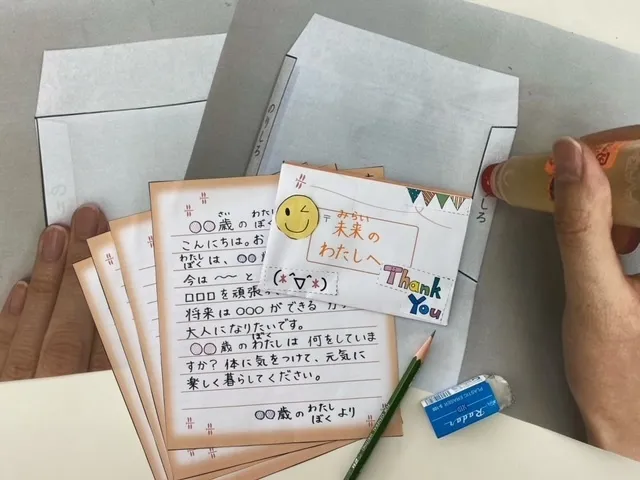 のりしろ
しろ
みらい
〒 未来の
わたしへ
(*^▽^*)
Thank
You
さい わたし
○○歳のぼく
こんにちは。お
わたし
ぼくは、○○
今は 〜〜 と
□□□を頑張
将来は○○ができる
大人になりたいです。
ぼく
○○歳のわたしは 何をしていま
すか? 体に気をつけて、元気に
楽しく暮らしてください。
わたし
○○歳の ぼく より
Radar
PLASTIC ERASER